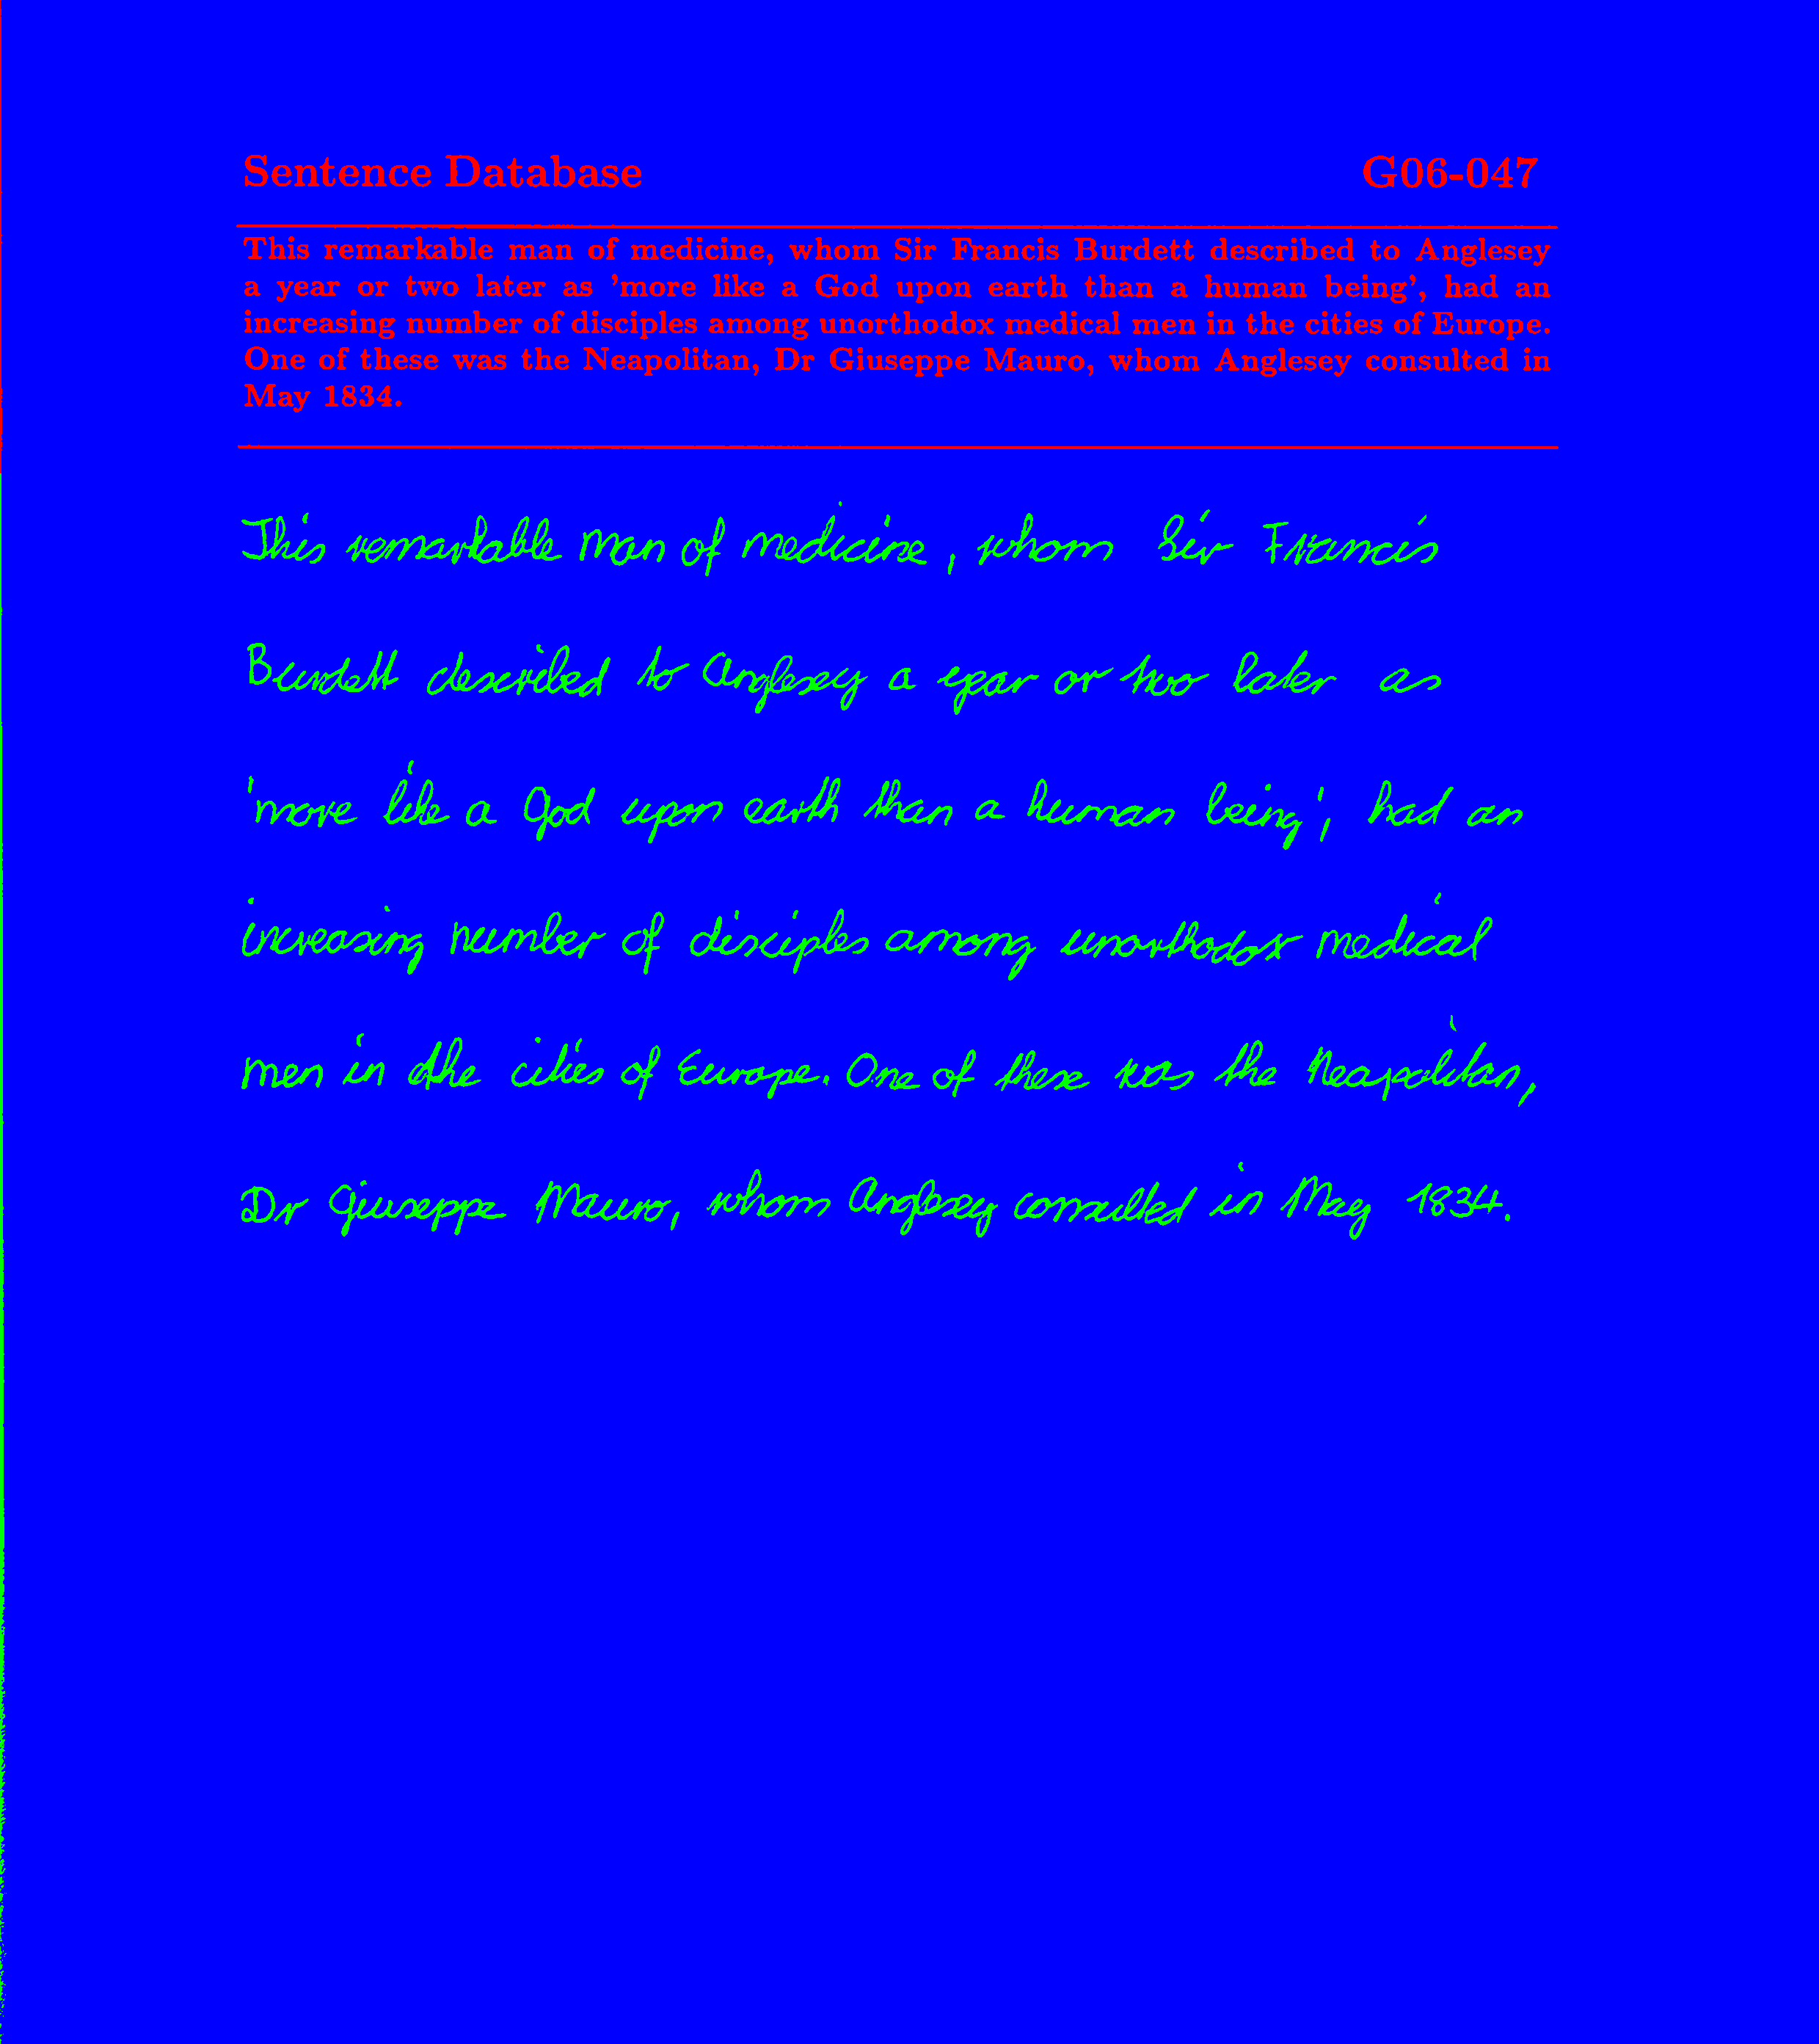 Sentence Database G06-047
This remarkable man of medicine, whom Sir Francis Burdett described to Anglesey
a year or two later as 'more like a God upon earth than a human being', had an
increasing number of disciples among unorthodox medical men in the cities of Europe.
One of these was the Neapolitan, Dr Giuseppe Mauro, whom Anglesey consulted in
May 1834.
This remarkable man of medicine, whom Sir Francis
Burdett described to Anglesey a year or two later as
'more like a God upon earth than a human being', had an
increasing number of disciples among unorthodox medical
men in the cities of Europe. One of these was the Neapolitan,
Dr Giuseppe Mauro, whom Anglesey consulted in May 1834.